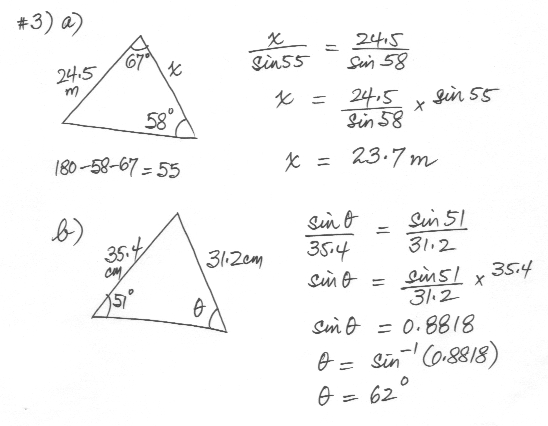 #3) a)
67°
24.5
m
x
58°
180-58-67=55
x/sin55 = 24.5/sin 58
x = 24.5/sin 58 × sin 55
x = 23.7m
b)
35.4
cm
31.2cm
51°
θ
sin θ/35.4 = sin 51/31.2
sin θ = sin51/31.2 × 35.4
sin θ = 0.8818
θ = sin⁻¹(0.8818)
θ = 62°